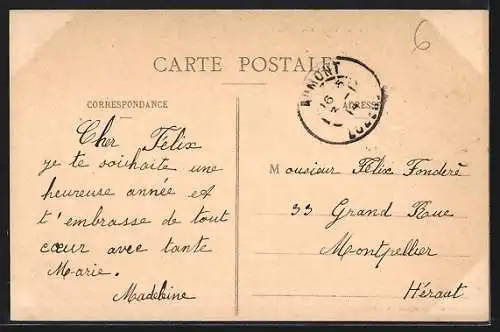 6
CARTE POSTALE
CORRESPONDANCE
ADRESSE
AUMONT
LOZÈRE
Cher Félix
je te souhaite une
heureuse année et
t'embrasse de tout
cœur avec tante
Marie.
Madeleine
Monsieur Félix Fonderé
33 Grand Rue
Montpellier
Hérault